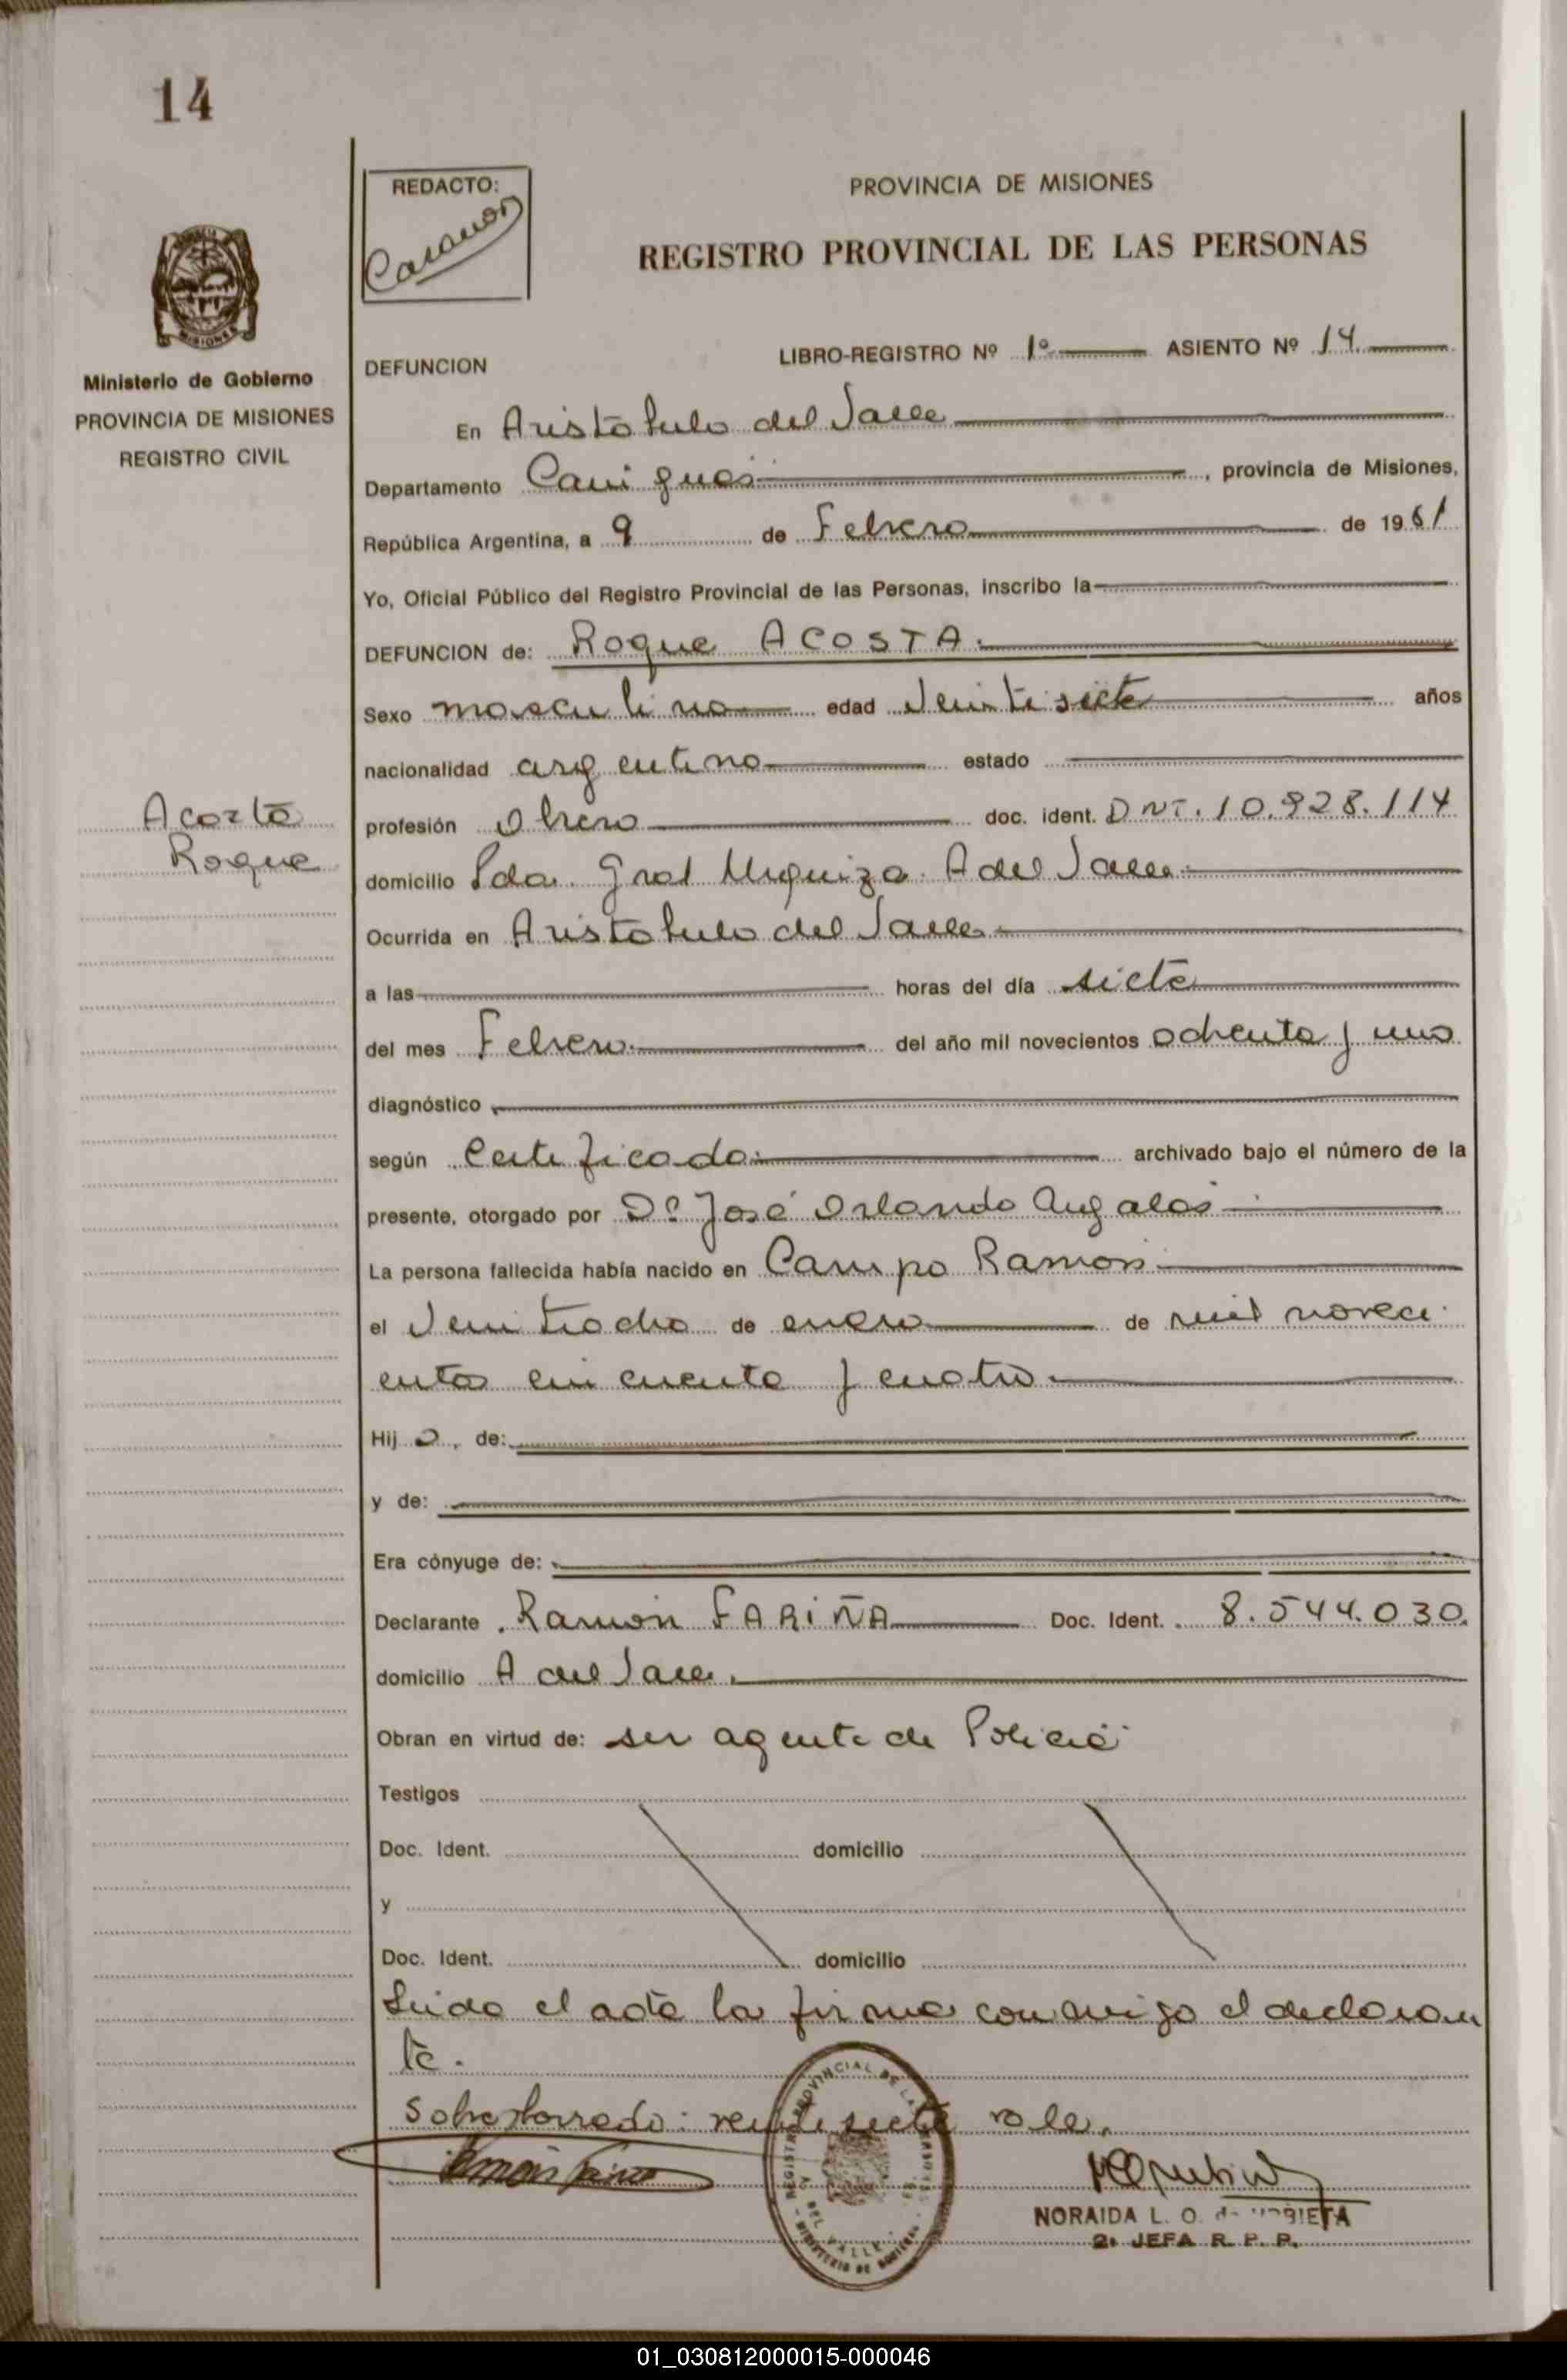 14
REDACTO:
PROVINCIA DE MISIONES
REGISTRO PROVINCIAL DE LAS PERSONAS
MISIONES
Ministerio de Gobierno
PROVINCIA DE MISIONES
REGISTRO CIVIL
DEFUNCION
LIBRO-REGISTRO Nº 1º ASIENTO Nº 14.
En Aristobulo del Valle
Departamento Cainguás, provincia de Misiones,
República Argentina, a 9 de Febrero de 1981
Yo, Oficial Público del Registro Provincial de las Personas, inscribo la
DEFUNCION de: Roque ACOSTA.
Sexo masculino edad Veintisiete años
nacionalidad argentino estado
Acosta
Roque
profesión Obrero doc. ident. DNI. 10.928.114
domicilio Pda. Gral Urquiza. A del Valle
Ocurrida en Aristobulo del Valle
a las horas del día siete
del mes Febrero. del año mil novecientos ochenta y uno
diagnóstico
según Certificado archivado bajo el número de la
presente, otorgado por Dº José Orlando
La persona fallecida había nacido en Campo Ramón
el Veintiocho de enero de mil noveci
entos cincuenta y cuatro
Hijo, de:
y de:
Era cónyuge de:
Declarante Ramón FARIÑA Doc. Ident. 8.544.030.
domicilio A del Valle.
Obran en virtud de: ser agente de Policía
Testigos
Doc. Ident. domicilio
y
Doc. Ident. domicilio
Leida el acta la firma conmigo el declaran
te.
Sobreborrado: veintisiete vale.
NORAIDA L. O. de URBIETA
2ª JEFA R. P. P.
01_030812000015-000046